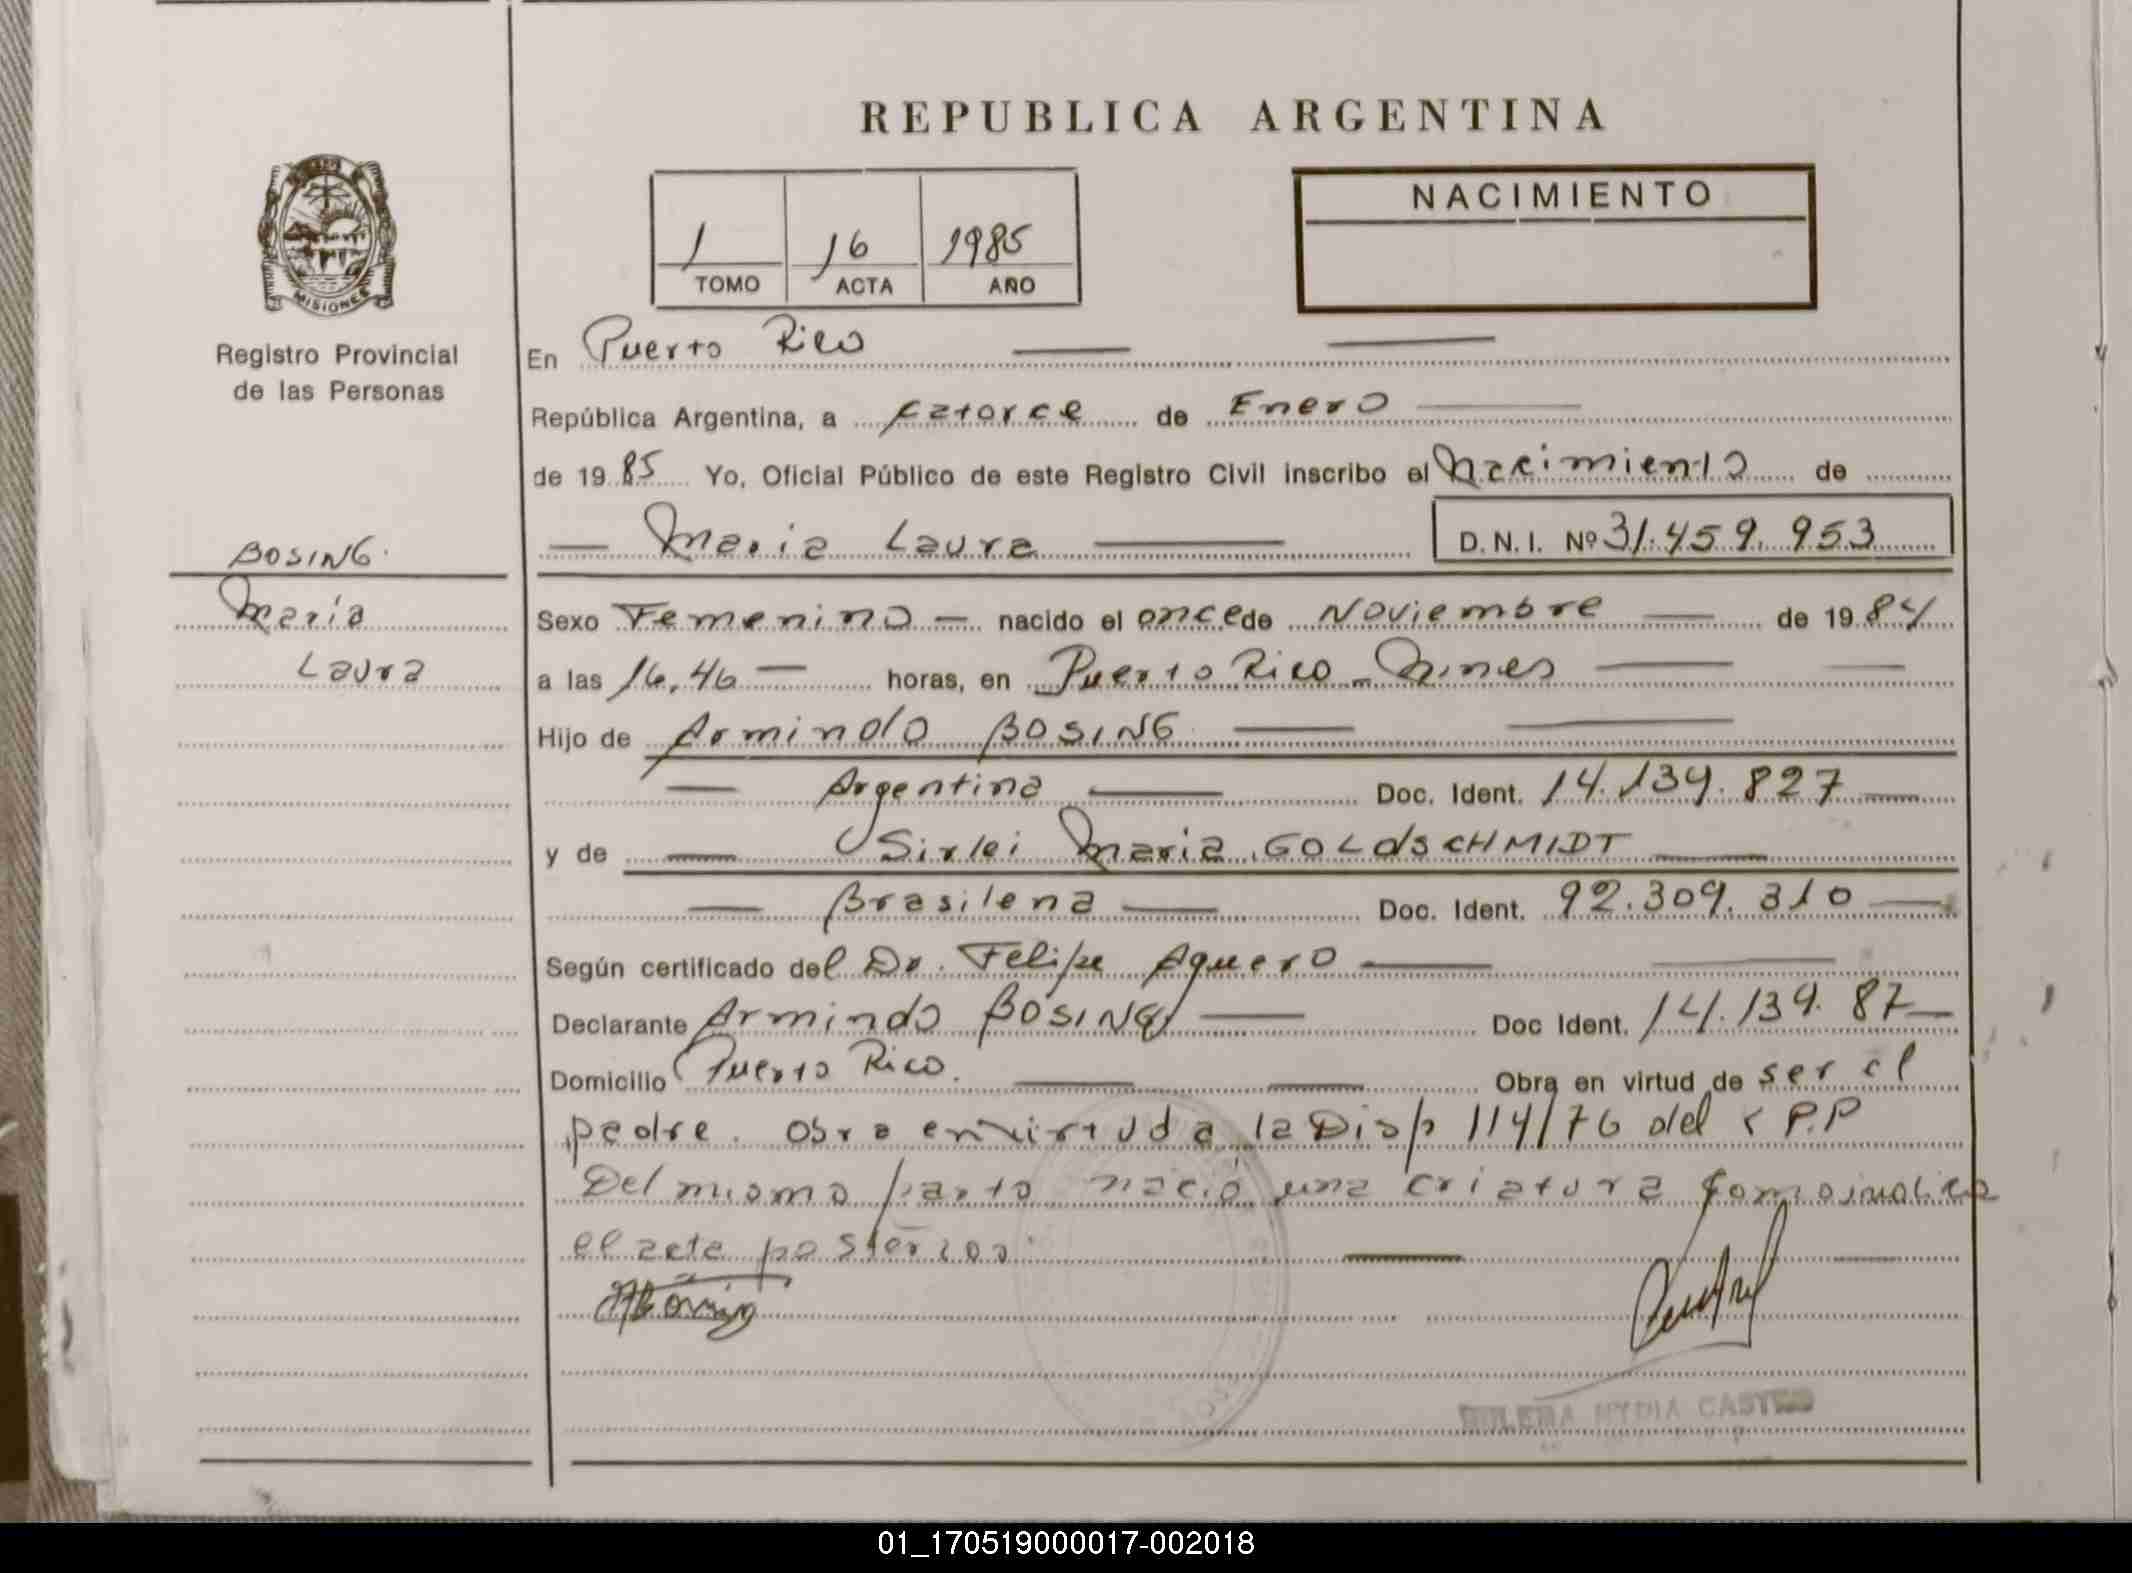 REPUBLICA ARGENTINA
NACIMIENTO
1 16 1985
TOMO ACTA AÑO
MISIONES
Registro Provincial
de las Personas
En Puerto Rico
República Argentina, a catorce de Enero
de 1985 Yo, Oficial Público de este Registro Civil inscribo el Nacimiento de
Maria Laura D.N.I. Nº 31.459.953
BOSING
Maria
Laura
Sexo Femenino nacido el once de Noviembre de 1984
a las 16,46 horas, en Puerto Rico
Hijo de Armindo BOSING
Argentina Doc. Ident. 14.139.827
y de Sirlei Maria GOLdSCHMIDT
Brasilena Doc. Ident. 92.309.310
Según certificado del Dr. Felipe Aguero
Declarante Armindo BOSING Doc Ident. 14.139.87
Domicilio Puerto Rico. Obra en virtud de ser el
padre. Obra en virtud a la Disp 114/76 del P.P
Del mismo parto nació una criatura
el acta posterior
CASTRO
01_170519000017-002018